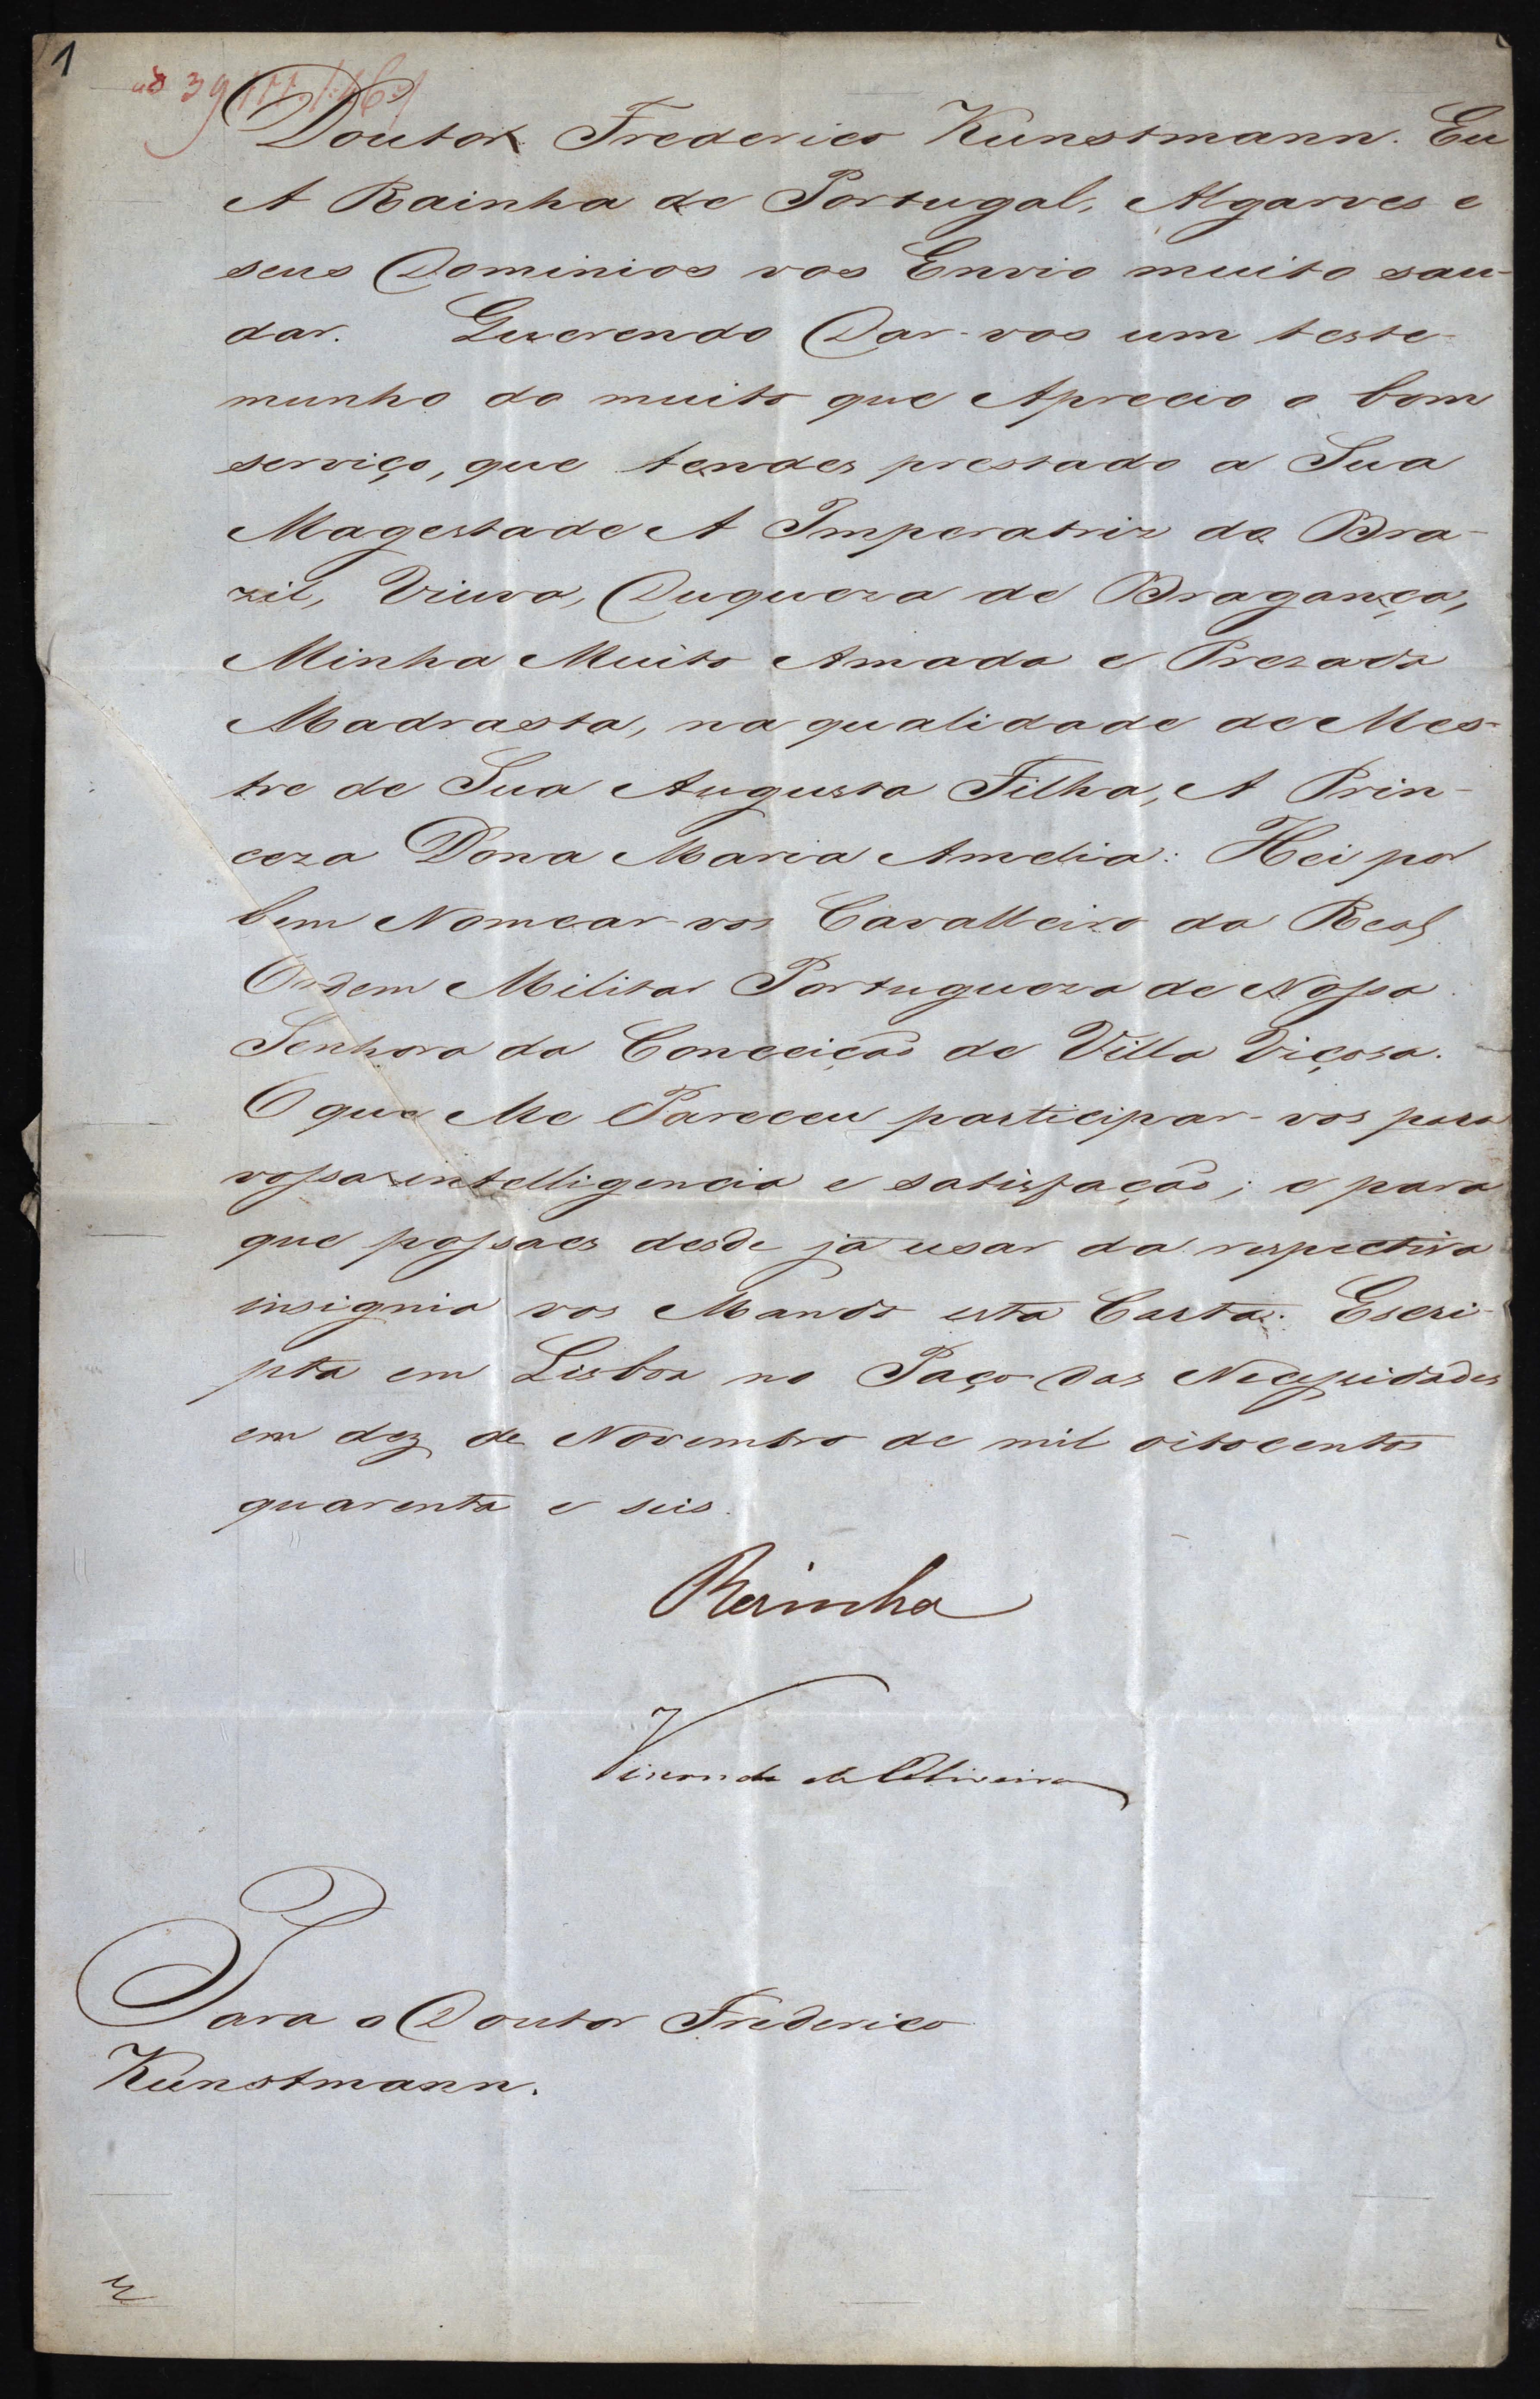 1
Doutor Frederico Kunstmann. Eu
A Rainha de Portugal, Algarves e
seus Dominios vos Envio muito sau-
dar. Querendo Dar-vos um teste-
munho do muito que Aprecio o bom
serviço, que tendes prestado a Sua
Magestade A Imperatriz do Bra-
zil, Viuva, Duqueza de Bragança,
Minha Muito Amada e Prezada
Madrasta, na qualidade de Mes-
tre de Sua Augusta Filha, A Prin-
ceza Dona Maria Amelia: Hei por
bem Nomear-vos Cavalleiro da Real
Ordem Militar Portugueza de Nossa
Senhora da Conceição de Villa Viçosa.
O que Me Pareceu participar-vos para
vossa intelligencia e satisfação; e para
que possaes desde já usar da respectiva
insignia vos Mando esta Carta. Escri-
pta em Lisboa no Paço das Necessidades
em dez de Novembro de mil oitocentos
quarenta e seis.
Rainha
Visconde de Oliveira
Para o Doutor Frederico
Kunstmann.